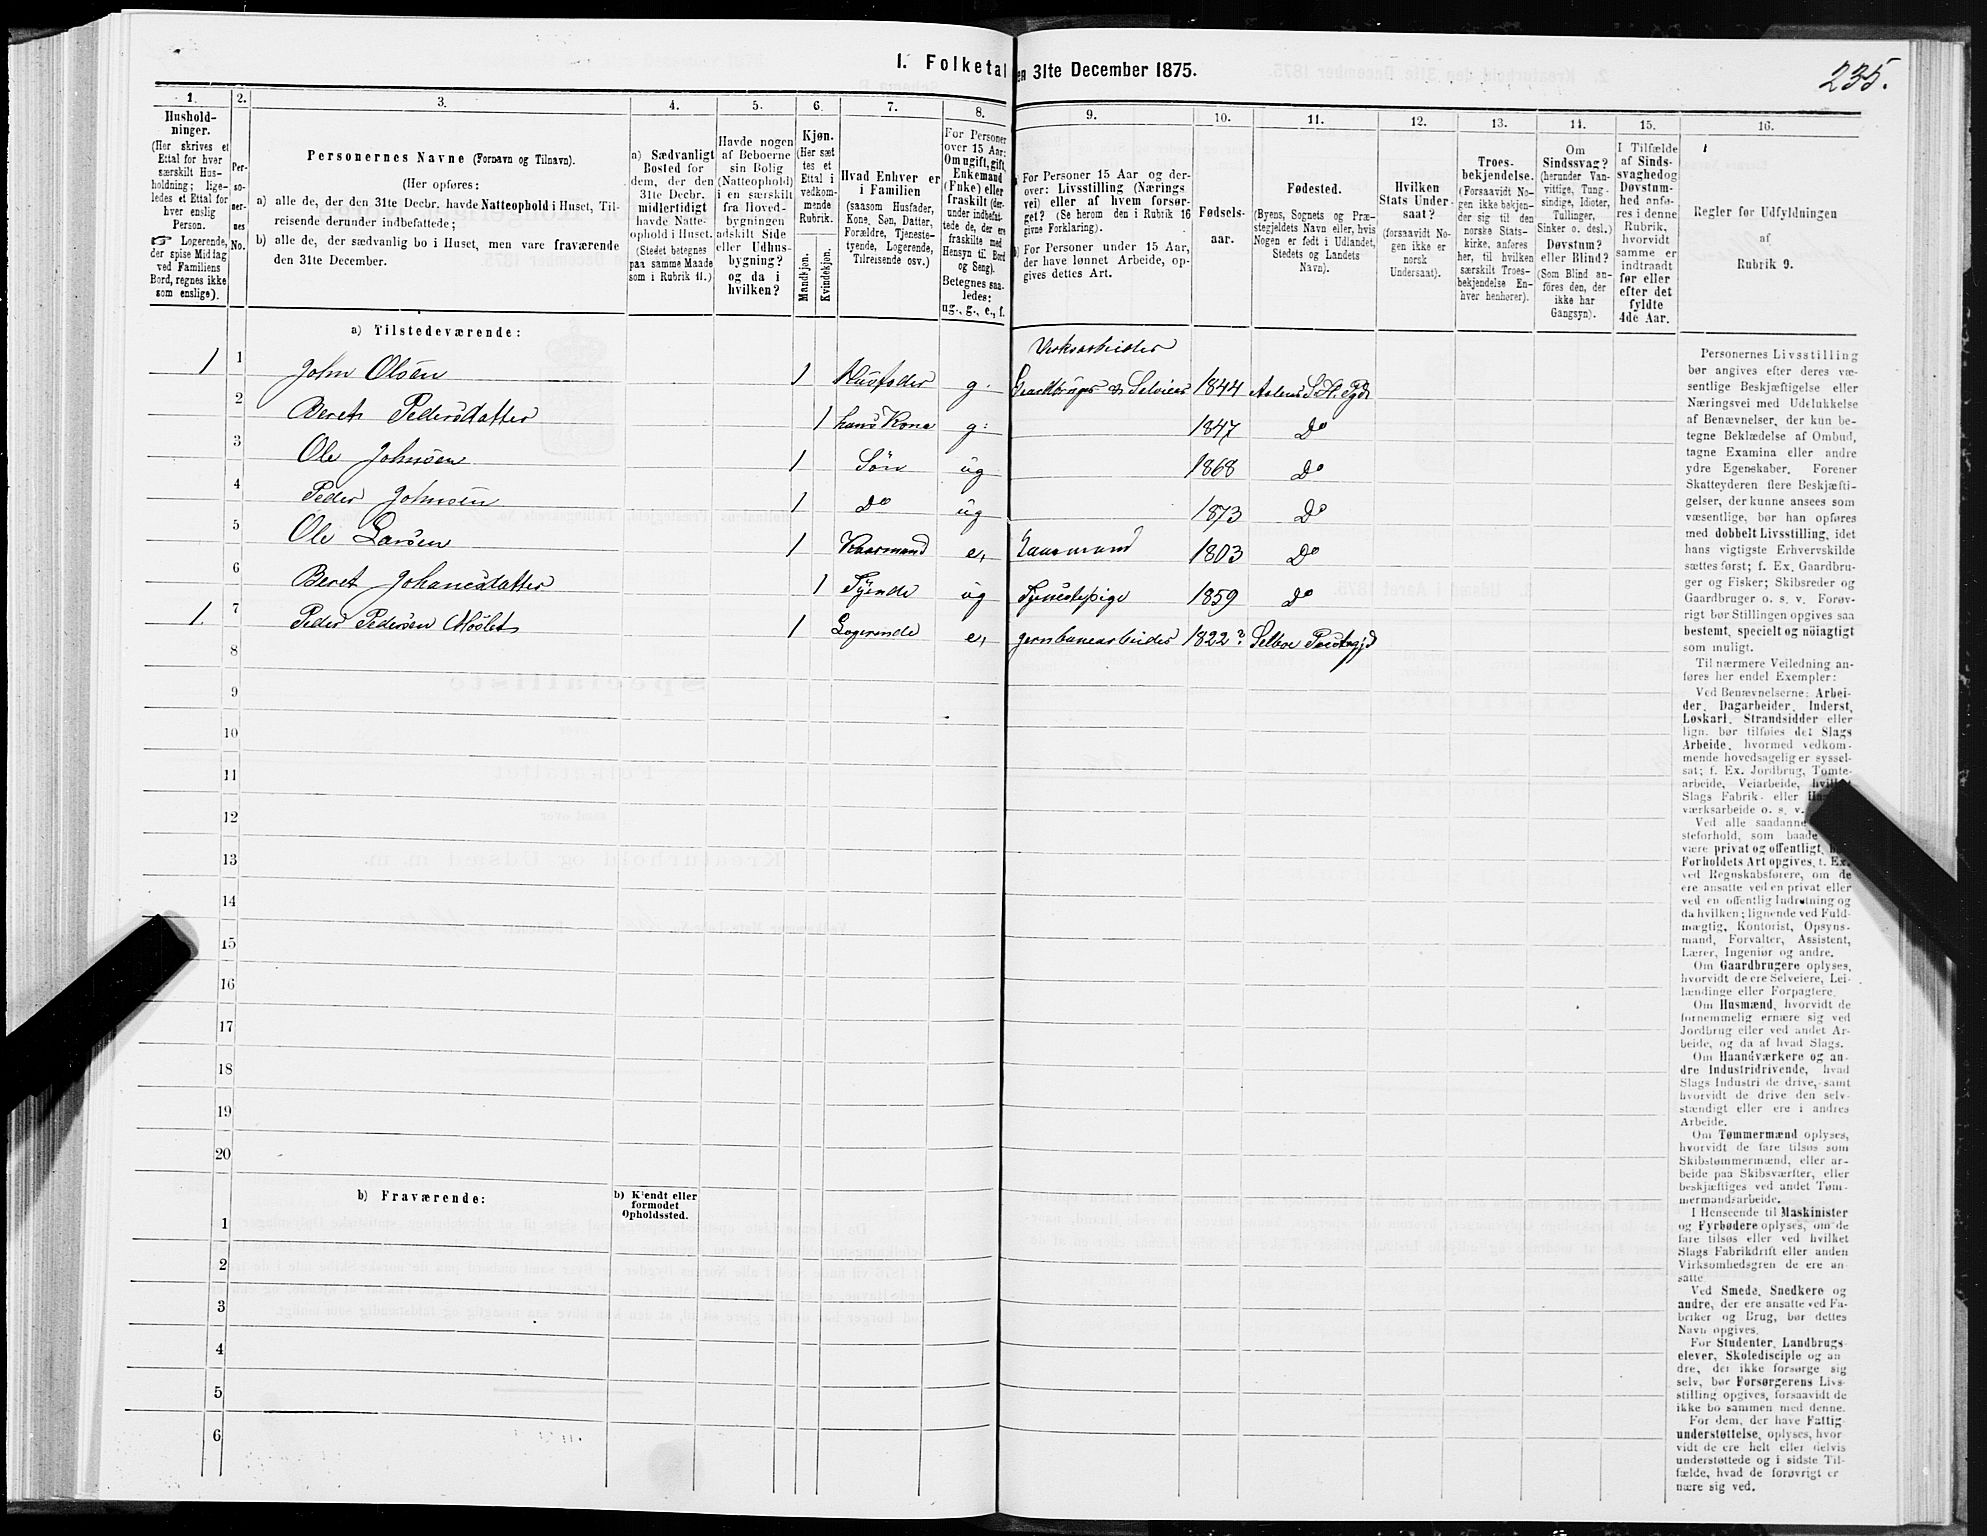 I. Folketal
en 31te December 1875.
235.
1.
Hushold-
ninger.
(Her skrives et
Ettal for hver
særskilt Hus-
holdning; lige-
ledes et Ettal for
hver enslig
Person.
☞ Logerende,
der spise Middag
ved Familiens
Bord, regnes ikke
som enslige).
2.
Per-
so-
ner-
nes
No.
3.
Personernes Navne (Fornavn og Tilnavn).
(Her opføres:
a) alle de, der den 31te Decbr. havde Natteophold i Huset, Til-
reisende derunder indbefattede;
b) alle de, der sædvanlig bo i Huset, men vare fraværende
den 31te December.
4.
a) Sædvanligt
Bosted for
dem, der den
31te Decbr.
midlertidigt
havde Natte-
ophold i Huset.
(Stedet betegnes
paa samme Maade
som i Rubrik 11.)
5.
Havde nogen
af Beboerne
sin Bolig
(Natteophold)
i en særskilt
fra Hoved-
bygningen
adskilt Side
eller Udhus-
bygning?
og da i
hvilken?
6.
Kjøn.
(Her sæt
tes et
Ettal i
vedkom-
mende
Rubrik.
Mandkjøn.
Kvindekjøn.
7.
Hvad Enhver er
i Familien
(saasom Husfader,
Kone, Søn, Datter,
Forældre, Tjeneste-
tyende, Logerende,
Tilreisende osv.)
8.
For Personer
over 15 Aar:
Om ugift, gift,
Enkemand
(Enke) eller
fraskilt (der-
under indbefat-
tede de, der ere
fraskilte med
Hensyn til Bord
og Seng).
Betegnes saa-
ledes:
ug., g., e., f.
9.
a) For Personer 15 Aar og der-
over: Livsstilling (Nærings
vei) eller af hvem forsør-
get? (Se herom den i Rubrik 16
givne Forklaring).
b) For Personer under 15 Aar,
der have lønnet Arbeide, op-
gives dettes Art.
10.
Fødsels-
aar.
11.
Fødested.
(Byens, Sognets og Præ-
stegjeldets Navn eller, hvis
Nogen er født i Udlandet,
Stedets og Landets
Navn).
12.
Hvilken
Stats Under-
saat?
(forsaavidt No-
gen ikke er
norsk
Undersaat).
13.
Troes-
bekjendelse.
(Forsaavidt No-
gen ikke bekjen-
der sig til den
norske Stats-
kirke, anføres
her, til hvilken
særskilt Troes-
bekjendelse En-
hver henhører).
14.
Om
Sindssvag?
(herunder Van-
vittige, Tung-
sindige, Idioter,
Tullinger,
Sinker o. desl.)
Døvstum?
eller Blind?
(Som Blind an-
føres den, der
ikke har
Gangsyn).
15.
I Tilfælde
af Sinds-
svaghed og
Døvstum-
hed anfø-
res i denne
Rubrik,
hvorvidt
samme er
indtraadt
før eller
efter det
fyldte
4de Aar.
16.
Regler før Udfyldningen
af
Rubrik 9.
a) Tilstedeværende:
Verksarbeider
1 1 John Olsen 1 Husfader g. Gaardbruger og Selveier 1844 Aalens S. H. Pgd
2 Beret Pedersdatter 1 hans Kone g: 1847 Do
3 Ole Johnsen 1 Søn ug 1868 Do
4 Peder Johnsen 1 Do ug 1873 Do
5 Ole Larsen 1 Kaarmand e, Kaarmand 1803 Do
6 Beret Johanesdatter 1 Tyende ug Tjenestepige 1859 Do
1. 7 Peder Pedersen Moslet 1 Logerende e, jernbanearbeider 1822? Selboe Præstegjd
8
9
10
11
12
13
14
15
16
17
18
19
20
b) Fraværende:
b) Kjendt eller
formodet
Opholdssted.
1
2
3
4
5
6
Personernes Livsstilling
bør angives efter deres væ-
sentlige Beskjæftigelse eller
Næringsvei med Udelukkelse
af Benævnelser, der kun be-
tegne Beklædelse af Ombud,
tagne Examina eller andre
ydre Egenskaber. Forener
Skatteyderen flere Beskjæfti-
gelser, der kunne ansees som
væsentlige, bør han opføres
med dobbelt Livsstilling, idet
hans vigtigste Erhvervskilde
sættes først; f. Ex. Gaardbru-
ger og Fisker; Skibsreder og
Gaardbruger o. s. v. Forøv-
rigt bør Stillingen opgives saa
bestemt, specielt og nøiagtigt
som muligt.
Til nærmere Veiledning an-
føres her endel Exempler:
Ved Benævnelserne: Arbei-
der, Dagarbeider, Inderst,
Løskarl, Strandsidder eller
lign. bør tilføies det Slags
Arbeide, hvormed vedkom-
mende hovedsagelig er syssel-
sat; f. Ex. Jordbrug, Tomte-
arbeide, Veiarbeide, hvilket
Slags Fabrik- eller Haand-
værksarbeide o. s. v.
Ved alle saadanne
steforhold, som baade
være privat og offentligt,
Forholdets Art opgives, f. Ex.
ved Regnskabsførere, om de
ere ansatte ved en privat eller
ved en offentlig Indretning og
da hvilken; lignende ved Fuld-
mægtig, Kontorist, Opsyns-
mand, Forvalter, Assistent,
Lærer, Ingeniør og andre.
Om Gaardbrugere oplyses,
hvorvidt de ere Selveiere, Lei-
lændinge eller Forpagtere.
Om Husmænd, hvorvidt de
fornemmelig ernære sig ved
Jordbrug eller ved andet Ar-
beide, og da af hvad Slags.
Om Haandværkere og an-
dre Industridrivende, hvad
Slags Industri de drive, samt
hvorvidt de drive den selv-
stændigt eller ere i andres
Arbeide.
Om Tømmermænd oplyses,
hvorvidt de fare tilsøs som
Skibstømmermænd, eller ar-
beide paa Skibsværfter, eller
beskjæftiges ved andet Tøm-
mermandsarbeide.
I Henseende til Maskinister
og Fyrbødere oplyses, om de
fare tilsøs eller ved hvilket
Slags Fabrikdrift eller anden
Virksomhedsgren de ere an-
satte
Ved Smede, Snedkere og
andre, der ere ansatte ved Fa-
briker og Brug, bør dettes
Navn opgives.
For Studenter, Landbrugs-
elever, Skoledisciple og an
dre, der ikke forsørge sig
selv, bør Forsørgerens Livs-
stilling opgives, forsaavidt de
ikke bo sammen med denne.
For dem, der have Fattig-
understøttelse, oplyses, hvor
vidt de ere helt eller delvis
understøttede og i sidste Til-
fælde, hvad de forøvrigt er
nære sig ved.